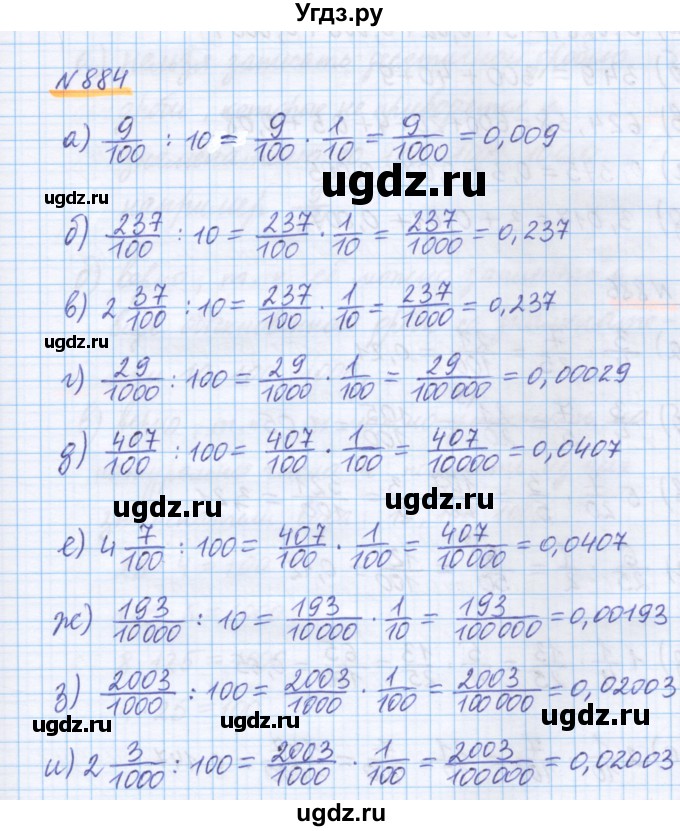 Угдз.ру
N 884
а) 9/100 : 10 = 9/100 · 1/10 = 9/1000 = 0,009
ugdz.ru
ugdz.ru
б) 237/100 : 10 = 237/100 · 1/10 = 237/1000 = 0,237
в) 2 37/100 : 10 = 237/100 · 1/10 = 237/1000 = 0,237
ugdz.ru
г) 29/1000 : 100 = 29/1000 · 1/100 = 29/100 000 = 0,00029
д) 407/100 : 100 = 407/100 · 1/100 = 407/10000 = 0,0407
ugdz.ru
ugdz.ru
е) 4 7/100 : 100 = 407/100 · 1/100 = 407/10 000 = 0,0407
ж) 193/10 000 : 10 = 193/10 000 · 1/10 = 193/100 000 = 0,00193
з) 2003/1000 : 100 = 2003/1000 · 1/100 = 2003/100 000 = 0,02003
ugdz.ru
ugdz.ru
ugdz.ru
и) 2 3/1000 : 100 = 2003/1000 · 1/100 = 2003/100 000 = 0,02003
ugdz.ru